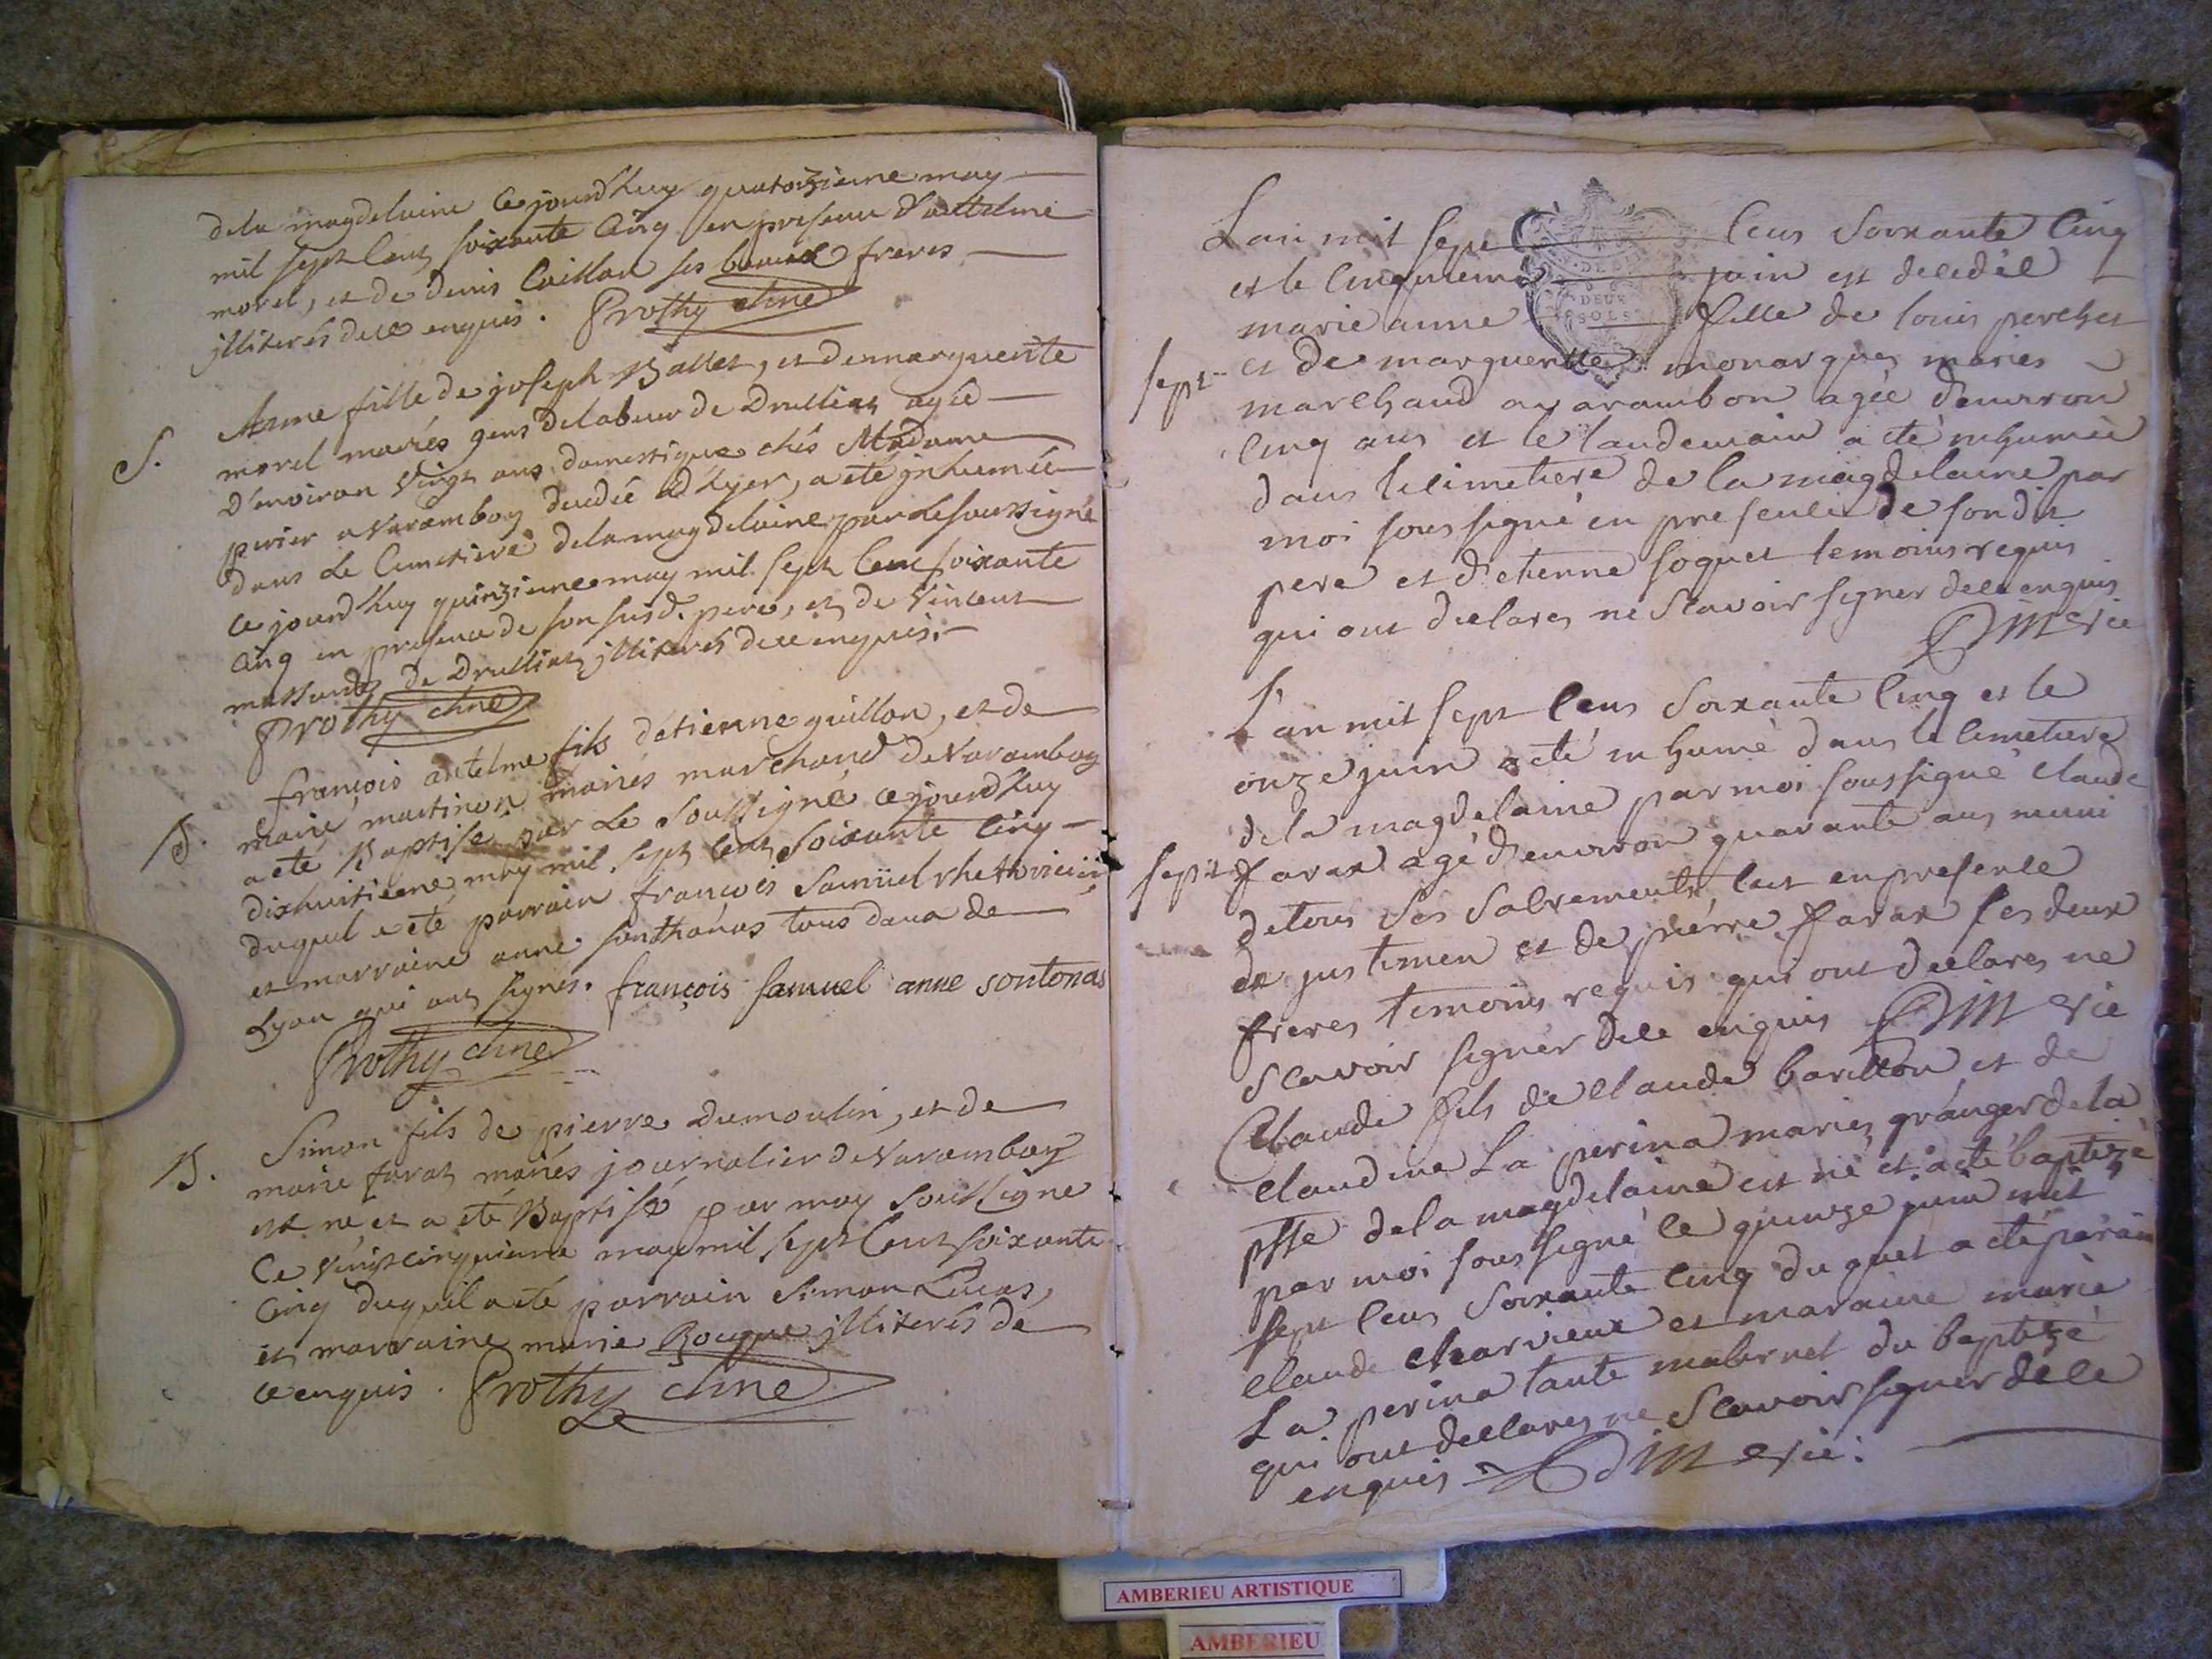 dela magdelaine Ce jourd'huy quatorzieme may
mil sept Cent soixante Cinq en presence d'antelme
morel, et de denis Caillon ses beaux freres
jlliterés dece enquis. Prothy chne
Anne fille de joseph Ballet, et demarguerite
S. morel mariés gens delabeur de Druillat agée
D'environ vingt ans domestique chés Madame
perier a Varambon decedée d'hyer, a eté jnhumée
dans Le Cimetiere dela magdelaine par Le soussigné
Ce jourd'huy quinzieme may mil sept Cent soixante
Cinq en presence de son susd. pere, et de Vincent
de Druillat jlliterés dece enquis.
Prothy chne
françois antelme fils d'etienne guillon, et de
B. marie martinon mariés marchand de Varambon
a eté Baptisé par Le Soussigné ce jourd'huy
dixhuitieme may mil sept Cent Soixante Cinq
duquel a eté parrain francois Samüel rhethoricien
et marraine anne santhonas tous deux de
Lyon qui ont signés. françois samuel anne sontonas
Prothy chne
Simon fils de pierre dumoulin, et de
B. marie farat mariés journalier de Varambon
est né et a eté Baptisé par moy Soussigné
Ce Vingtcinquieme may mil sept Cent soixante
Cinq duquel a eté parrain Simon Lucas,
et marraine marie Bouque jlliterés de
ce enquis. Prothy chne
L'an mil sept cens soixante cinq
et le cinquieme juin est decedée
DEUX
SOLS
marie anne fille de louis perchet
sept et de marguerite monarques mariés
marchand a varambon agée d'environ
cinq ans et le landemain a eté inhumée
dans le cimetiere de la magdelaine par
moi soussigné en presence de son dit
pere et d'etienne soquet temoins requis
qui ont declarés ne scavoir signer dece enquis
Dimerie
L'an mil sept cens soixante cinq et le
onze juin a eté inhumé dans le cimetiere
de la magdelaine par moi soussigné claude
sept farax agé d'environ quarante ans muni
de tous ses sacrements, en presence
de et de pierre farax ses deux
freres temoins requis qui ont declarés ne
scavoir signer dece enquis Dimerie
Claude fils de claude barillon et de
claudine La perina mariés granger de la
psse de la magdelaine est né et a eté baptizé
par moi soussigné le quinze juin mil
sept cens soixante cinq du quel a eté parain
claude charvieux et maraine marie
La perina tante maternel du baptizé
qui ont declarés ne scavoir signer de ce
enquis Dimerie.
AMBERIEU ARTISTIQUE
AMBERIEU